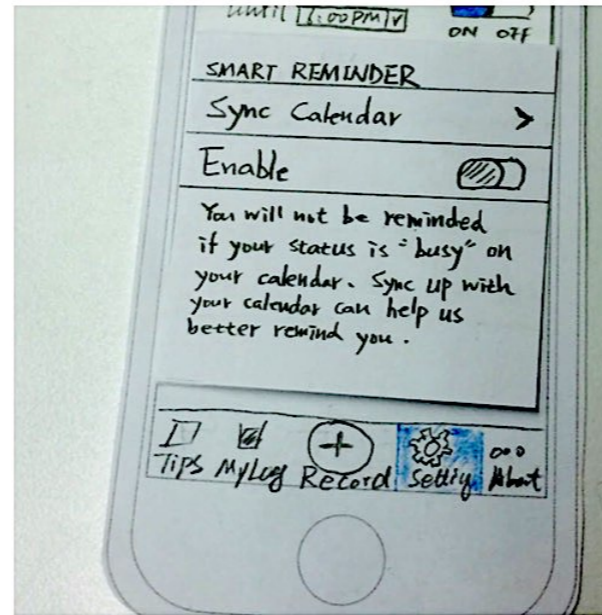 until 7:00PM
ON OFF
SMART REMINDER
Sync Calendar >
Enable
You will not be reminded
if your status is "busy" on
your calendar. Sync up with
your calendar can help us
better remind you.
Tips MyLog Record Setting About